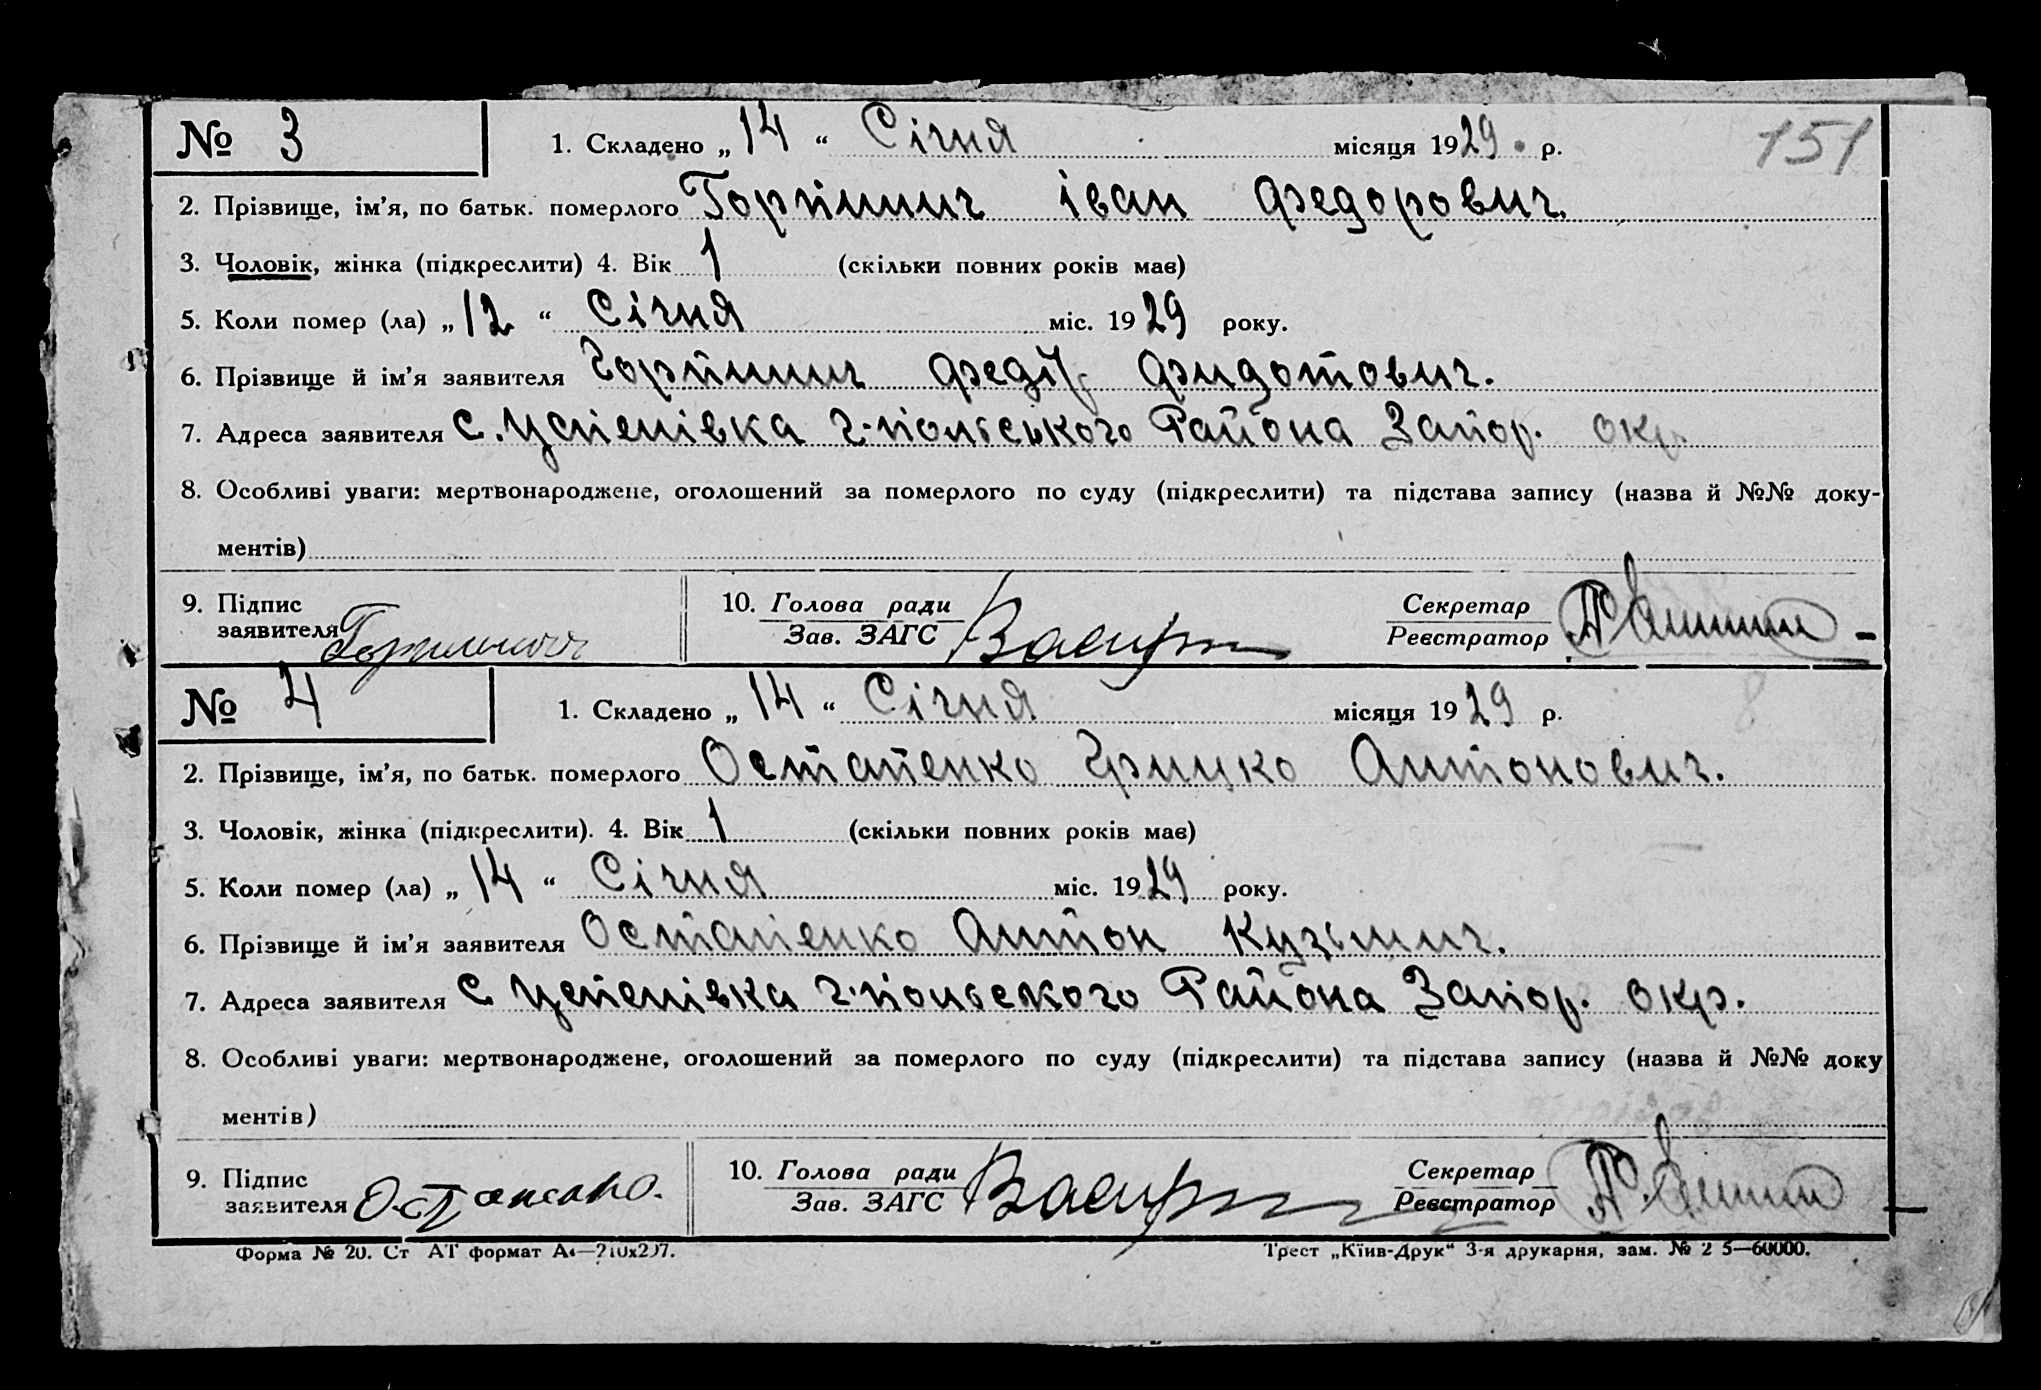 151
№ 3 1. Складено „ 14 “ Січня місяця 1929 р.
2. Прізвище, ім’я, по батьк. померлого Горпинич іван Федорович.
3. Чоловік, жінка (підкреслити) 4. Вік 1 (скільки повних років має)
5. Коли помер (ла) „ 12 “ Січня міс. 1929 року.
6. Прізвище й ім’я заявителя Горпинич Федір Фидотович.
7. Адреса заявителя с. Успенівка г.-польського Района Запор. окр.
8. Особливі уваги: мертвонароджене, оголошений за померлого по суду (підкреслити) та підстава запису (назва й №№ доку-
ментів)
9. Підпис 10. Голова ради Секретар
заявителя Зав. ЗАГС Реєстратор
№ 4 1. Складено „ 14 “ Січня місяця 1929 р.
2. Прізвище, ім’я, по батьк. померлого Остапенко Грицко Антонович.
3. Чоловік, жінка (підкреслити). 4. Вік 1 (скільки повних років має)
5. Коли помер (ла) „ 14 “ Січня міс. 1929 року.
6. Прізвище й ім’я заявителя Остапенко Антон Кузьмич.
7. Адреса заявителя с Успенівка г.-польского Района Запор. окр.
8. Особливі уваги: мертвонароджене, оголошений за померлого по суду (підкреслити) та підстава запису (назва й №№ доку
ментів)
9. Підпис 10. Голова ради Секретар
заявителя Остапенко. Зав. ЗАГС Реєстратор
Форма № 20. Ст АТ формат А4—210х297. Трест „Київ-Друк“ 3-я друкарня, зам. № 2 5—60000.